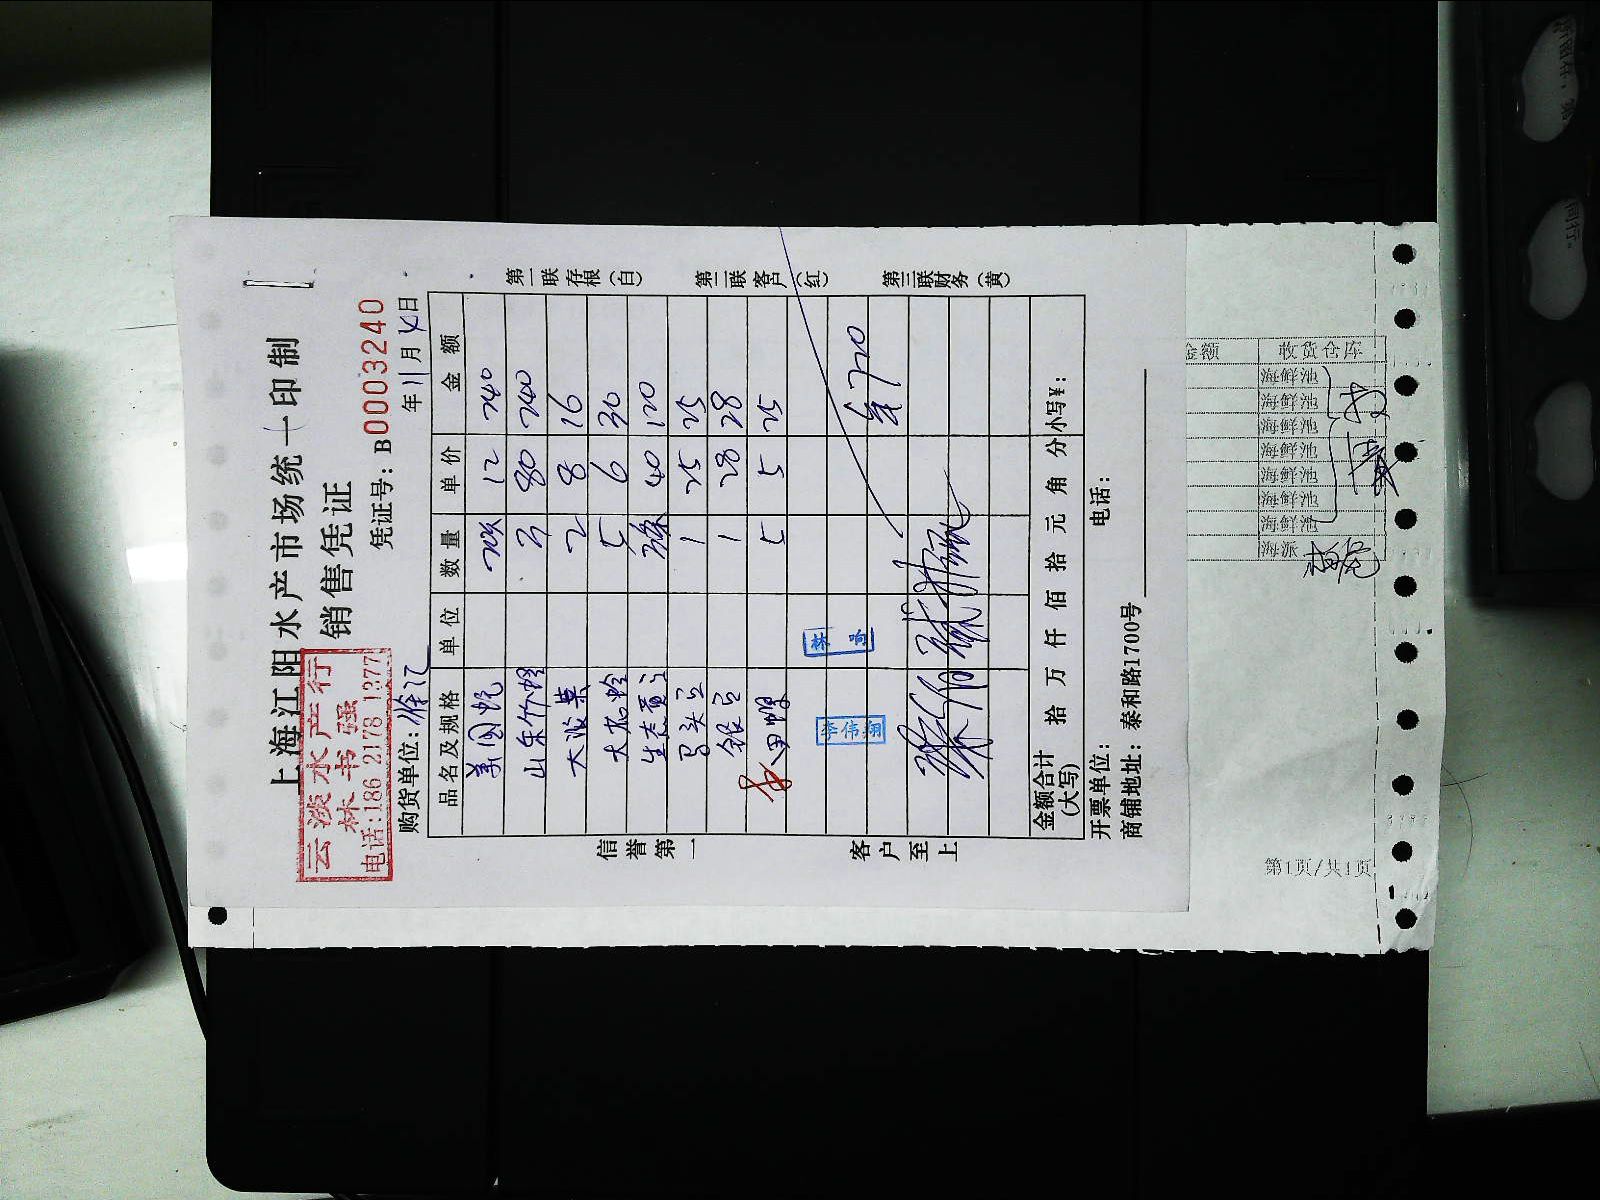 上海江阳水产市场统一印制
销售凭证
云淡水产行
林书强
电话:186 2178 1377
凭证号：B0003240
购货单位：徐汇
年11月4日
品名及规格 单位 数量 单价 金额
12 240
山东竹蛏 3 80 240
大菠菜 2 8 16
5 6 30
40 120
1 25 25
1 28 28
5 5 25
720
林 响
李伟翔
金额合计(大写) 拾 万 仟 佰 拾 元 角 分 小写¥：
开票单位： 电话：
商铺地址：泰和路1700号
信誉第一 客户至上
第一联存根(白)
第二联客户(红)
第三联财务(黄)
金额 收货仓库
海鲜池
海鲜池
海鲜池
海鲜池
海鲜池
海鲜池
海鲜池
海派
第1页/共1页